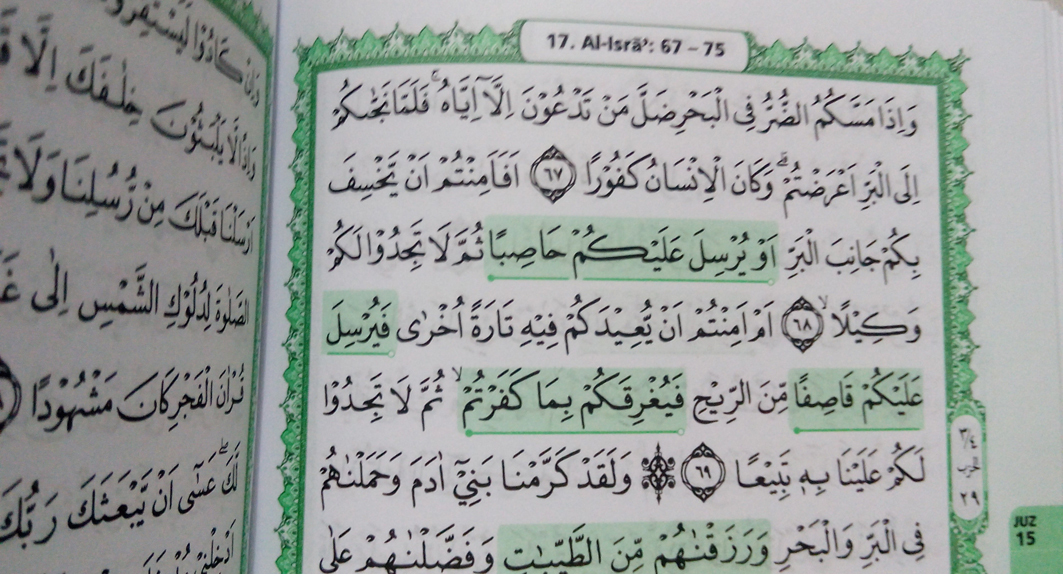 17. Al-Isrā': 67 – 75
وَاِذَا مَسَّكُمُ الضُّرُّ فِى الْبَحْرِ ضَلَّ مَنْ تَدْعُوْنَ اِلَّآ اِيَّاهُ ۚ فَلَمَّا نَجّٰىكُمْ
اِلَى الْبَرِّ اَعْرَضْتُمْ ۗ وَكَانَ الْاِنْسَانُ كَفُوْرًا ٦٧ اَفَاَمِنْتُمْ اَنْ يَّخْسِفَ
بِكُمْ جَانِبَ الْبَرِّ اَوْ يُرْسِلَ عَلَيْكُمْ حَاصِبًا ثُمَّ لَا تَجِدُوْا لَكُمْ
وَكِيْلًا ۙ ٦٨ اَمْ اَمِنْتُمْ اَنْ يُّعِيْدَكُمْ فِيْهِ تَارَةً اُخْرٰى فَيُرْسِلَ
عَلَيْكُمْ قَاصِفًا مِّنَ الرِّيْحِ فَيُغْرِقَكُمْ بِمَا كَفَرْتُمْ ۙ ثُمَّ لَا تَجِدُوْا
لَكُمْ عَلَيْنَا بِهٖ تَبِيْعًا ٦٩ ۞ وَلَقَدْ كَرَّمْنَا بَنِيْٓ اٰدَمَ وَحَمَلْنٰهُمْ
فِى الْبَرِّ وَالْبَحْرِ وَرَزَقْنٰهُمْ مِّنَ الطَّيِّبٰتِ وَفَضَّلْنٰهُمْ عَلٰى
٣/٤
الحزب
٢٩
JUZ
15
وَاِنْ كَادُوْا لَيَسْتَفِزُّ
وَاِذًا لَّا يَلْبَثُوْنَ خِلٰفَكَ اِلَّا
اَرْسَلْنَا قَبْلَكَ مِنْ رُّسُلِنَا وَلَا
الصَّلٰوةَ لِدُلُوْكِ الشَّمْسِ اِلٰى
قُرْاٰنَ الْفَجْرِ كَانَ مَشْهُوْدًا
لَّكَ ۖ عَسٰٓى اَنْ يَّبْعَثَكَ رَبُّكَ